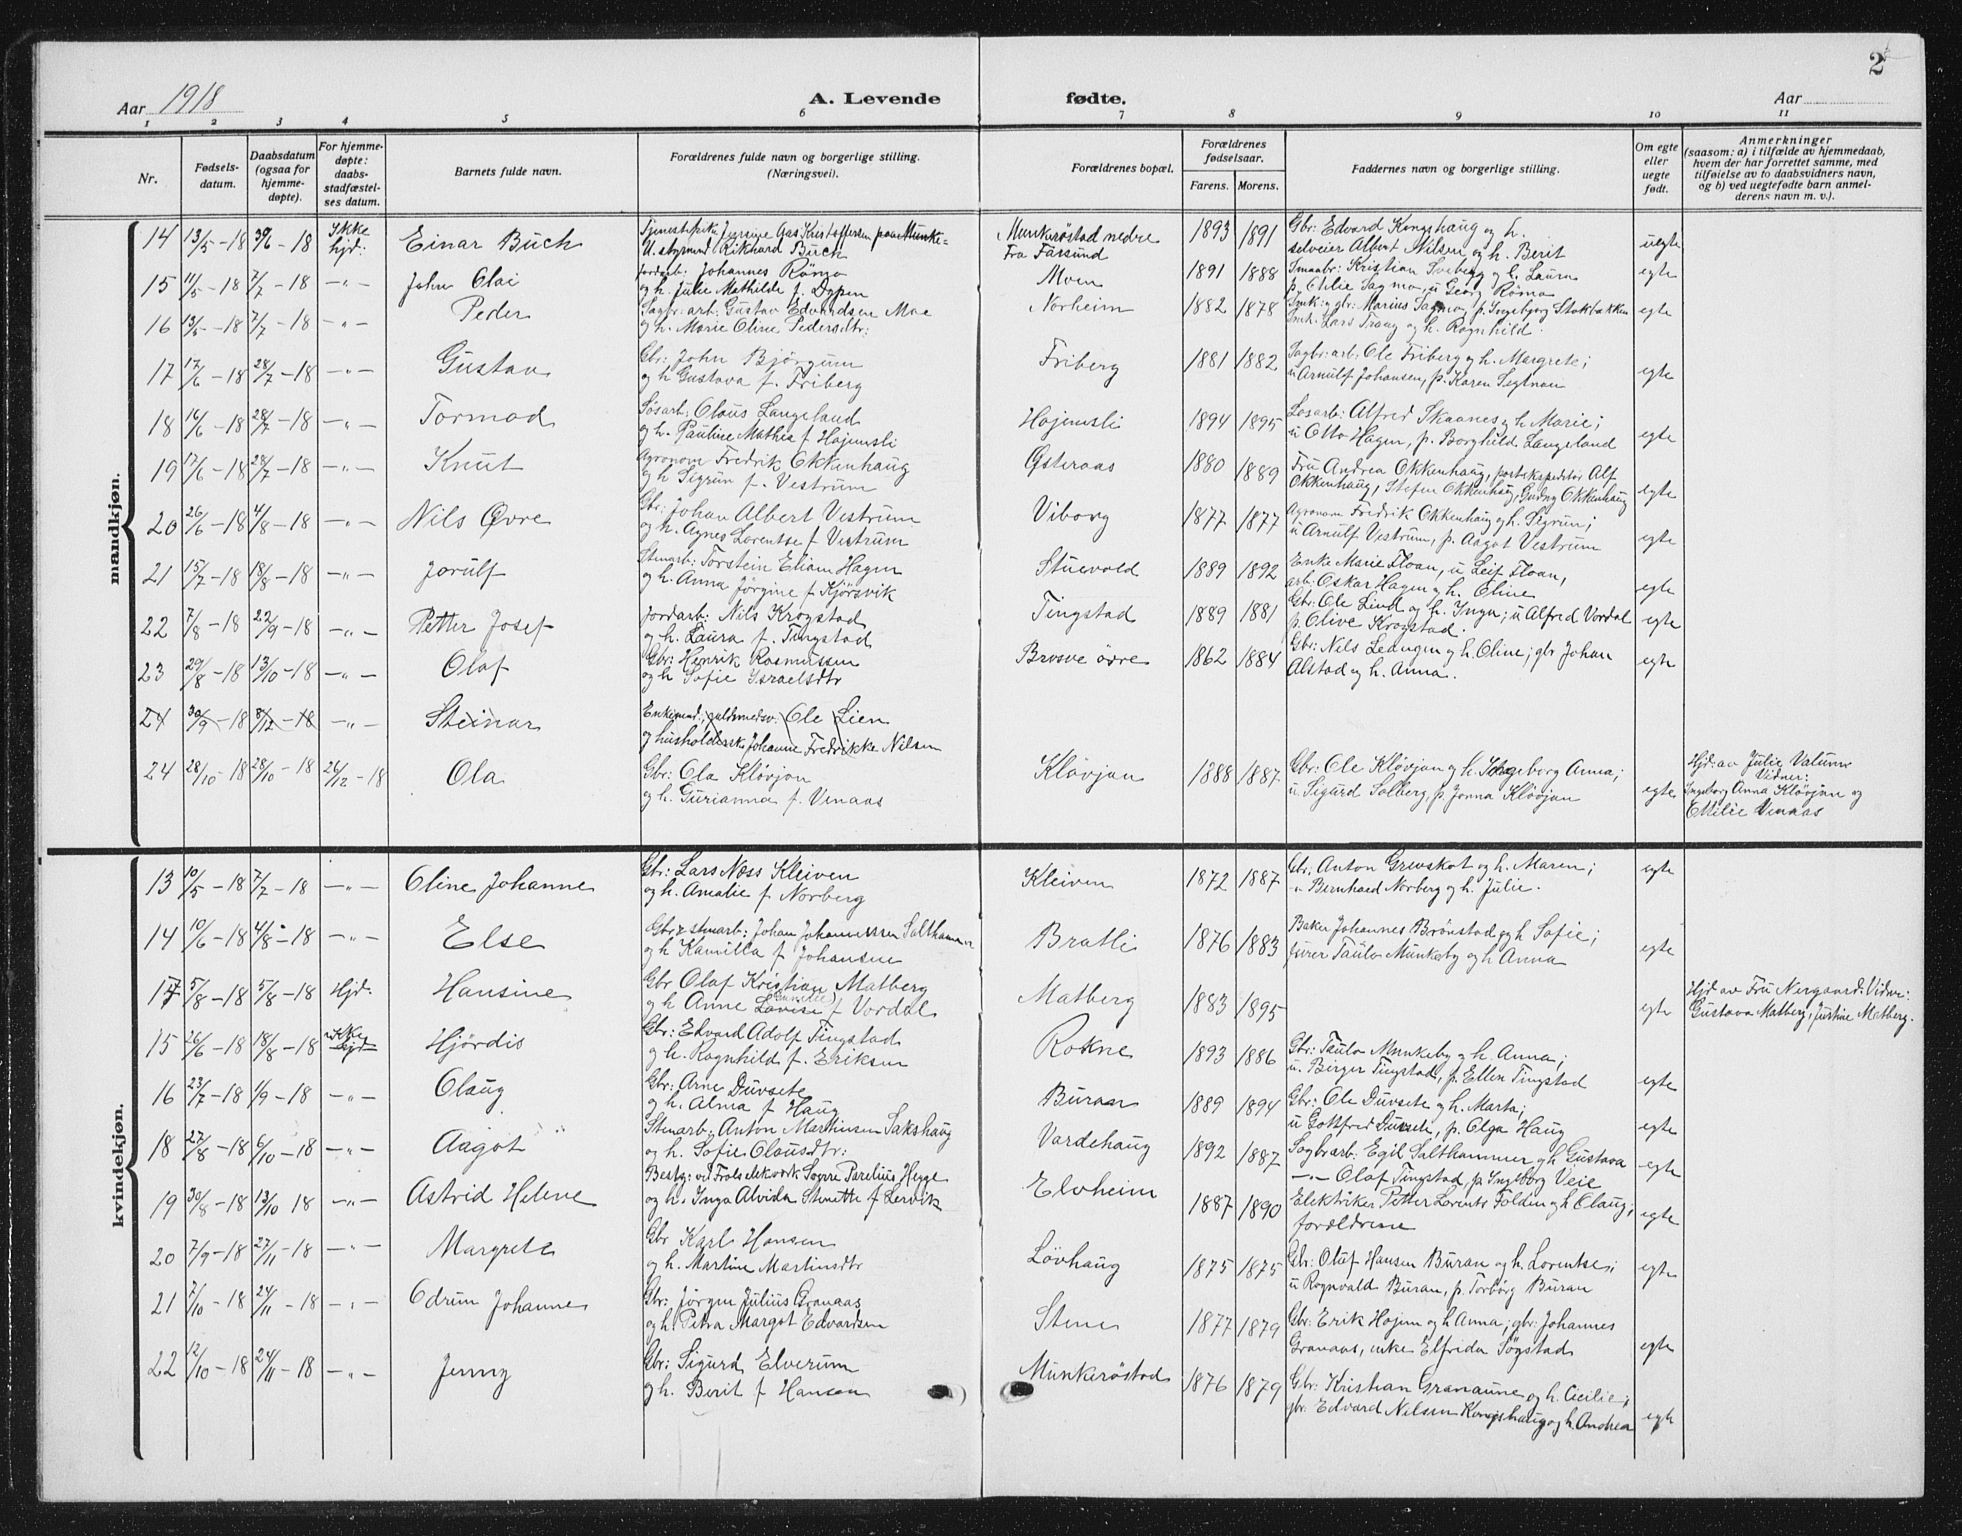 2
Aar 1918
A. Levende fødte.
Aar
1 2 3 4 5 6 7 8 9 10 11
Nr.
Fødsels-
datum.
Daabsdatum
(ogsaa for
hjemme-
døpte).
For hjemme-
døpte:
daabs-
stadfæstel-
ses datum.
Barnets fulde navn.
Forældrenes fulde navn og borgerlige stilling.
(Næringsvei).
Forældrenes bopæl.
Forældrenes
fødselsaar.
Farens. Morens.
Faddernes navn og borgerlige stilling.
Om egte
eller
uegte
født.
Anmerkninger
(saasom: a) i tilfælde av hjemmedaab,
hvem der har forrettet samme, med
tilføielse av to daabsvidners navn,
og b) ved uegtefødte barn anmel-
derens navn m. v.).
mandkjøn.
14 13/5-18 30/6-18 Ikke hjd: Einar Buch
U. styrmand Rikhard Buch
Munkerøstad nedre
Fra Farsund
1893 1891
Gbr: Edvard Kongshaug og h.
selveier Albert Nilsen og h. Berit
uegte
15 11/5-18 7/7-18 -"- John Olai
Jordarb: Johannes Römo
og h. Julie Mathilde f. Dypen
Moen
1891 1888
Smaabr: Kristian Sveberg og h. Laura
p. Otilie Sagmo, u Georg Römo
egte
16 13/5-18 7/7-18 -"- Peder
Sagbr: arb: Gustav Edvardsen Moe
og h. Marie Oline Pedersdtr:
Norheim
1882 1878
Smk: gbr: Marius Sagmo, p. Ingebjorg Stokbakken
Smk. Lars Traag og h. Ragnhild.
egte
17 17/6-18 28/7-18 -"- Gustav
Gbr: John Bjørgum
og h Gustava f. Friberg
Friberg
1881 1882
Sagbr: arb: Ole Friberg og h. Margrete;
u Arnulf Johansen, p. Karen Segtnan
egte
18 16/6-18 28/7-18 -"- Tormod
Løsarb: Claus Langeland
og h. Pauline Mathea f. Hojemsli
Hojemsli
1894 1895
Losarb: Alfred Skaanes og h Marie;
u Otto Hagen, p. Borghild Langeland
egte
19 17/6-18 28/7-18 -"- Knut
Agronom Fredrik Okkenhaug
og h Sigrun f. Vestrum
Østeraas
1880 1889
Fru Andrea Okkenhaug, postekspeditør Alf
Okkenhaug, Stefen Okkenhaug, Gudny Okkenhaug
egte
20 26/6-18 4/8-18 -"- Nils Øvre
Gbr: Johan Albert Vestrum
og h. Agnes Lorentse f Vestrum
Viborg
1877 1877
Agronom Fredrik Okkenhaug og h. Sigrun;
u Arnulf Vestrum, p. Aagot Vestrum
egte
21 15/7-18 18/8-18 -"- Jorulf
Stenarb: Torstein Eliam Hagen
og h. Anna Jörgine f Kjörsvik
Stuevold
1889 1892
Enke Marie Floan, u Leif Floan,
arb: Oskar Hagen og h. Oline
egte
22 7/8-18 22/9-18 -"- Petter Josef
Jordarb: Nils Krogstad
og h. Laura f. Tingstad
Tingstad
1889 1881
Gbr: Ole Lind og h. Inga; u Alfred Vordal
p. Olive Krogstad.
egte
23 29/8-18 13/10-18 -"- Olaf
Gbr: Henrik Rasmussen
og h Sofie Israelsdtr
Brosve övre
1862 1884
Gbr: Nils Leangen og h. Oline; gbr Johan
Alstad og h. Anna.
egte
24 30/9-18 8/12-18 -"- Steinar
Enkemand, guldsmedsv. Ole Lien
og husholderske Johanne Fredrikke Nilsen
24 28/10-18 28/10-18 26/12-18 Ola
Gbr: Ola Kløvjan
og h. Gurianna f. Venaas
Klövjan
1888 1887
Gbr: Ole Kløvjan og h. Ingeborg Anna;
u. Sigurd Solberg, p. Jonna Kløvjan
egte
Hjd: av Julie Valumr
Vidner:
Ingeborg Anna Kløvjan og
Otilie Venaas
kvindekjøn.
13 10/5-18 7/7-18 -"- Oline Johanne
Gbr: Lars Næss Kleiven
og h. Amalie f Norberg
Kleiven
1872 1887
Gbr: Anton Grevskot og h. Maren;
" Bernhard Norberg og h. Julie.
egte
14 10/6-18 4/8-18 -"- Else
Gbr & stenarb: Johan Johannessen Salthammer
og h Kamilla f Johansen
Bratli
1876 1883
Baker Johannes Brönstad og h Sofie;
furer Taulov Munkeby og h Anna
egte
17 5/8-18 5/8-18 Hjd: Hansine
Gbr Olaf Kristian Matberg
og h Anne Lovise f Vordal
Matberg
1883 1895
egte
Hjd av Fru Nergaard. Vidner:
Gustava Matberg, Justine Matberg.
15 26/6-18 18/8-18 Ikke hjd Hjördis
Gbr: Edvard Adolf Tingstad
og h. Ragnhild f. Eriksen
Rokne
1893 1886
Gbr: Taulov Munkeby og h. Anna;
u. Birger Tingstad, p. Ellen Tingstad
egte
16 23/7-18 1/9-18 -"- Olaug
Gbr: Arne Duvsete
og h. Alma f Haug
Buran
1889 1894
Gbr: Ole Duvsete og h. Marta;
u Gottfred Duvsete, p. Olga Haug
egte
18 27/8-18 6/10-18 -"- Aagot
Stenarb: Anton Martinsen Sakshaug
og h. Sofie Olausdtr:
Vardehaug
1892 1887
Sagbr arb: Egil Salthammer og h Gustava
-"- Olaf Tingstad, p Ingeborg Veie
egte
19 30/8-18 13/10 18 -"- Astrid Helene
Besty: ved Fols elekverk Sogre Parelius Hegge
og h. Inga Alvida Stenette f Lervik
Elvheim
1887 1890
Elektriker Petter Lorents Folden og h Olaug;
forældrene
egte
20 7/9-18 27/11-18 -"- Margrete
Gbr Karl Hansen
og h. Martine Martinsdtr
Lövhaug
1875 1875
Gbr: Oluf Hansen Buran og h. Lorentse;
u Rognvald Buran, p. Torborg Buran
egte
21 7/10-18 24/11-18 -"- Odrun Johanne
Gbr: Jörgen Julius Granaas
og h. Petra Margot Edvardsen
Stene
1877 1879
Gbr: Erik Hojem og h Anna; gbr: Johannes
Granaas, enke Elfrida Sogstad
egte
22 12/10-18 24/11-18 -"- Jenny
Gbr: Sigurd Elverum
og h. Berit f Hansen
Munkeröstad
1876 1879
Gbr: Kristian Granaune og h. Cicilie;
gbr: Edvard Nilsen Kongshaug og h. Andrea
egte